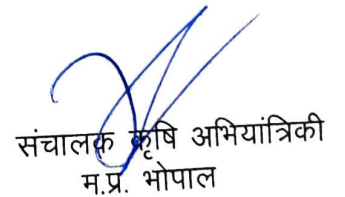 संचालक कृषि अभियांत्रिकी
म.प्र. भोपाल